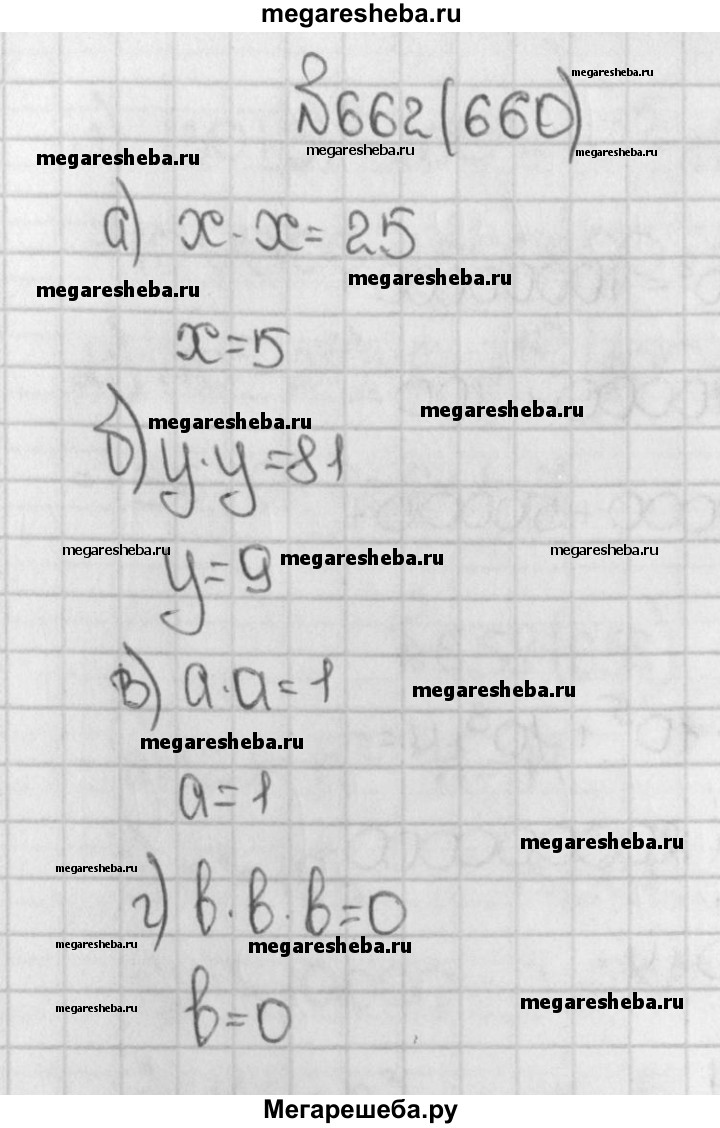 megaresheba.ru
megaresheba.ru
№662(660)
megaresheba.ru megaresheba.ru megaresheba.ru
а) x·x=25
megaresheba.ru megaresheba.ru
x=5
megaresheba.ru megaresheba.ru
б) y·y=81
megaresheba.ru megaresheba.ru megaresheba.ru
y=9
в) a·a=1
megaresheba.ru
megaresheba.ru
a=1
megaresheba.ru
megaresheba.ru
г) в·в·в=0
megaresheba.ru megaresheba.ru
в=0
megaresheba.ru megaresheba.ru
Мегарешеба.ру